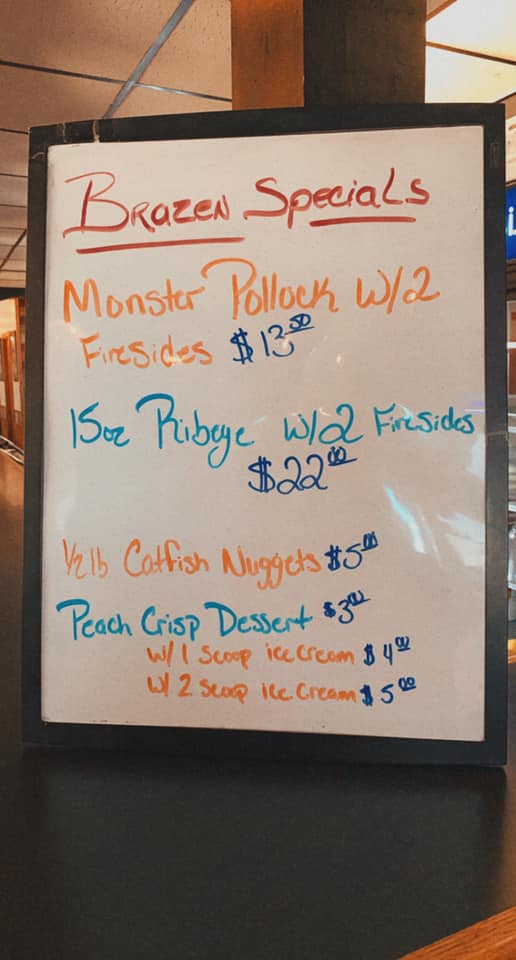 Brazen Specials
Monster Pollock w/2
Firesides $13.50
15oz Ribeye w/2 Firesides
$22.00
1/2 lb Catfish Nuggets $5.00
Peach Crisp Dessert $3.00
w/ 1 Scoop ice cream $4.00
w/ 2 Scoop ice Cream $5.00